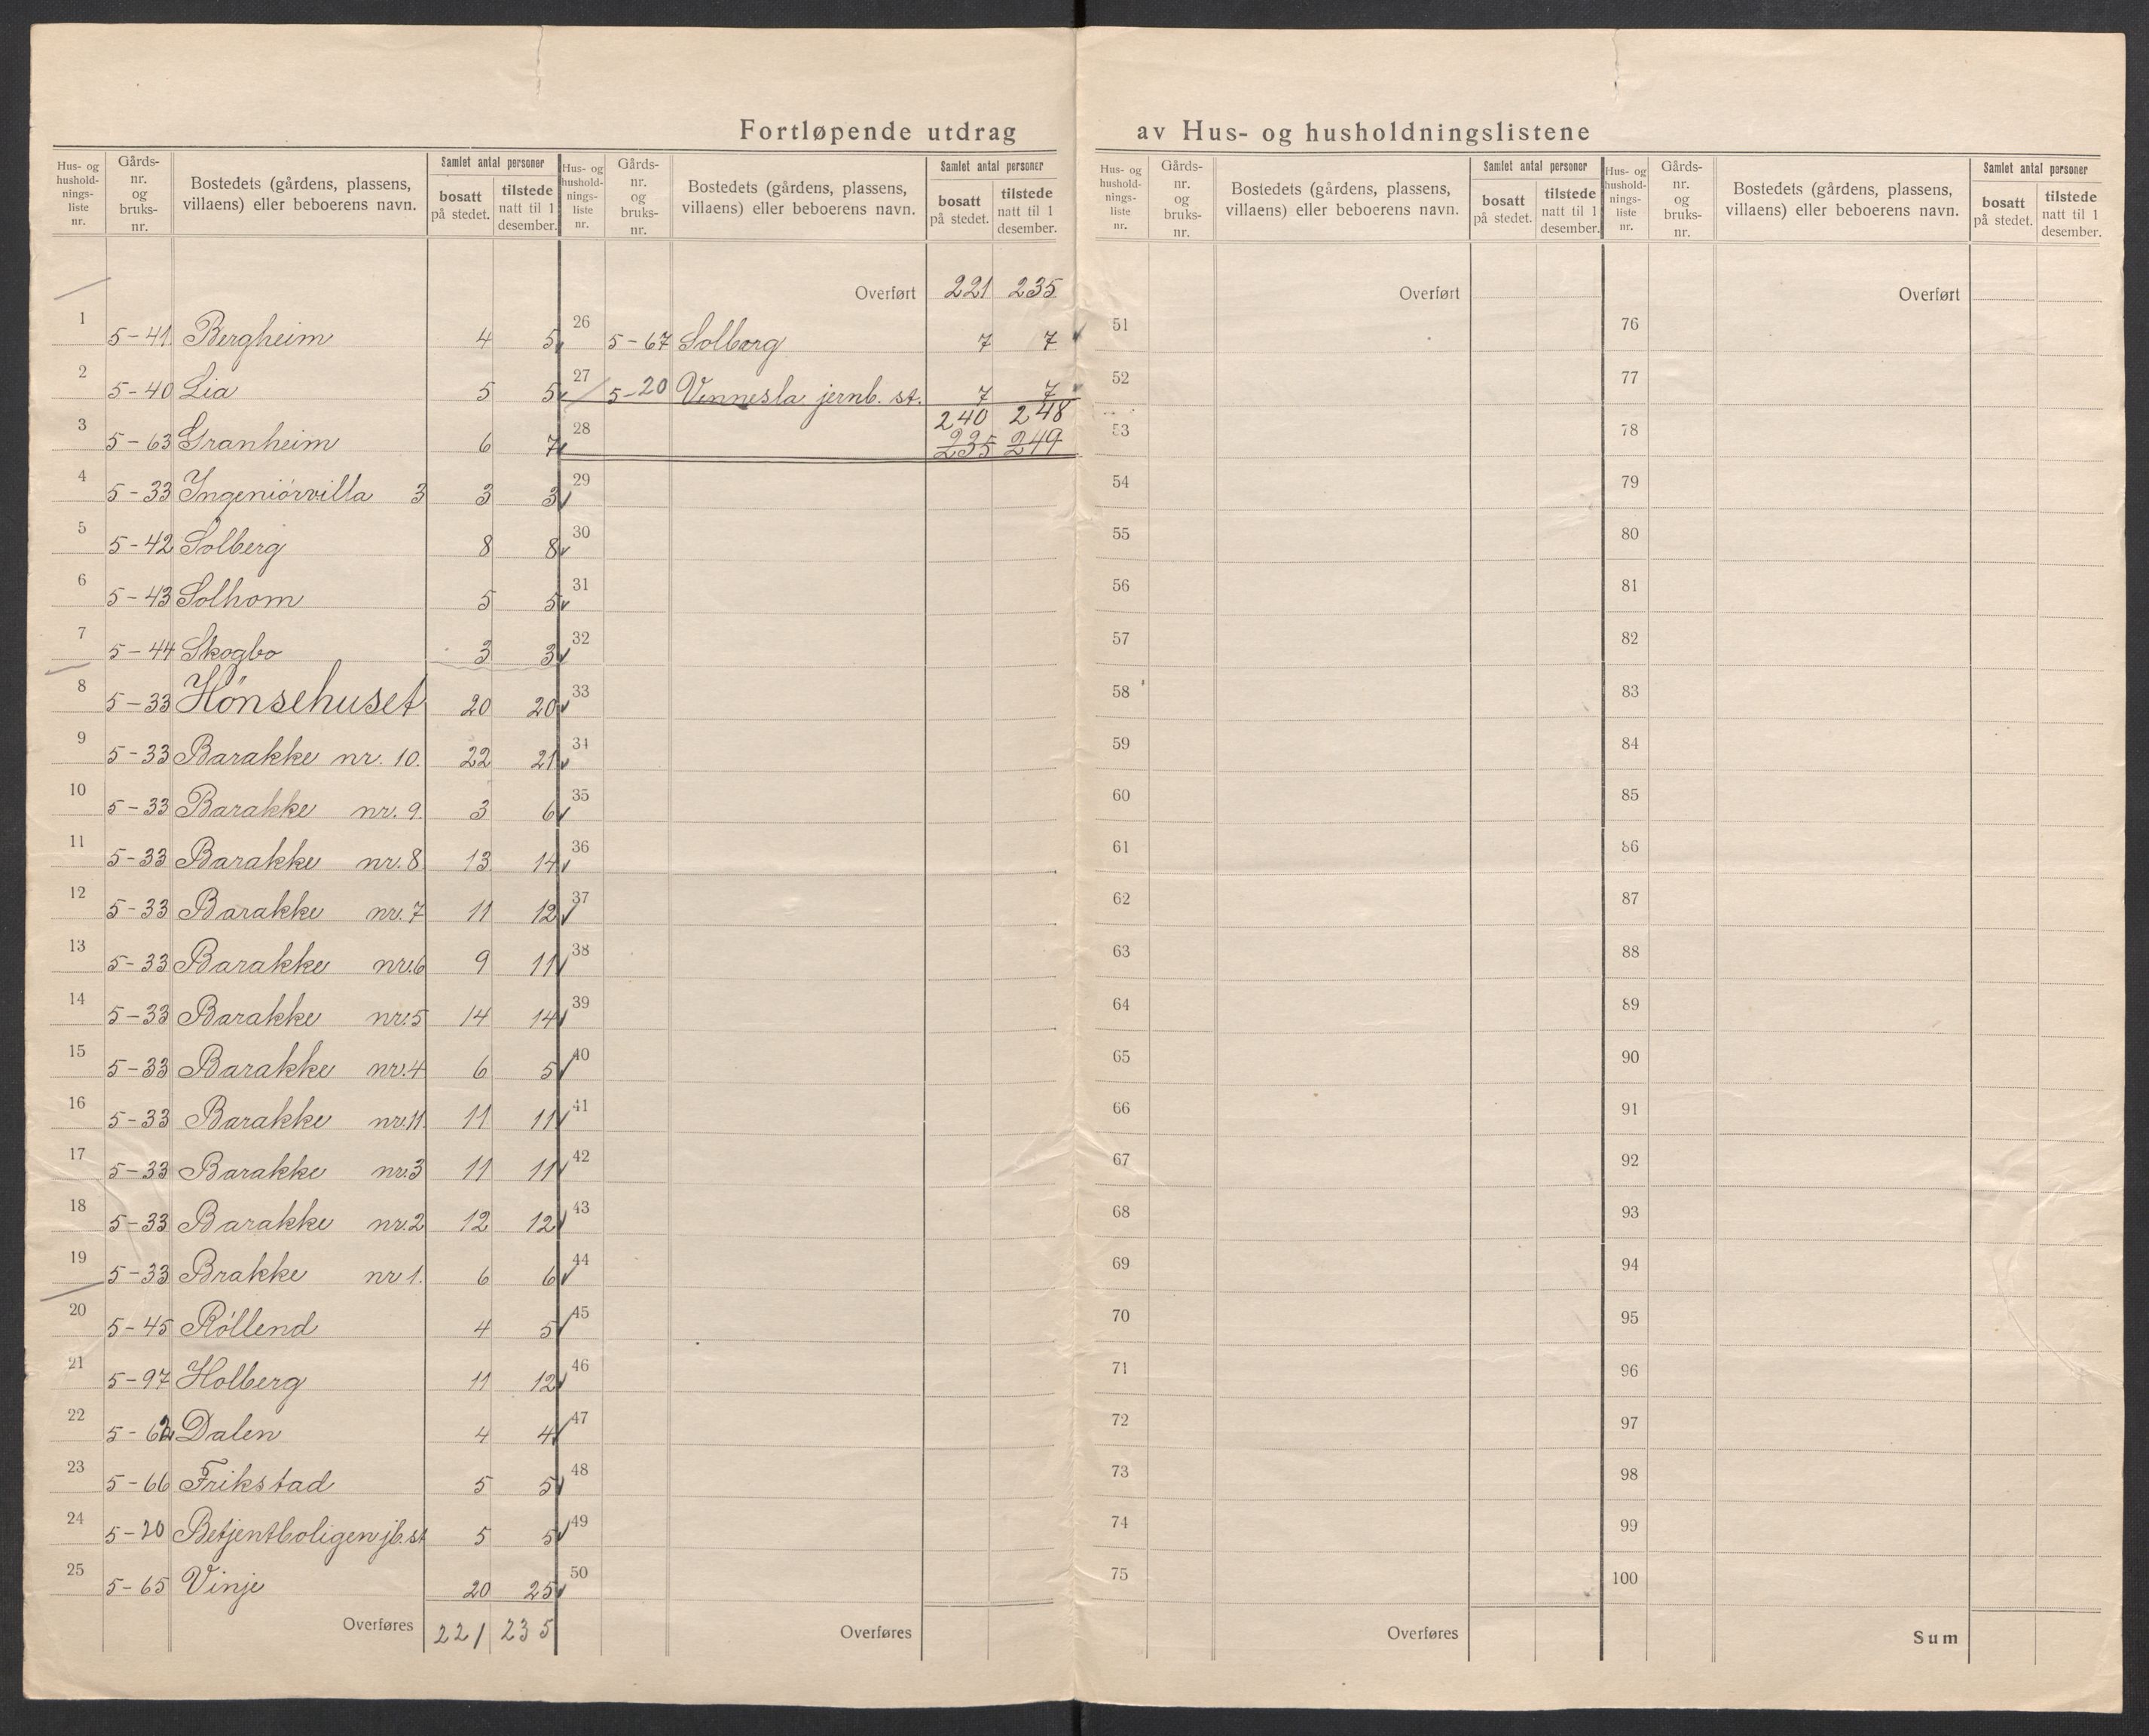 Fortløpende utdrag av Hus- og husholdningslistene
Hus- og husholdnings-liste nr. | Gårds-nr. og bruks-nr. | Bostedets (gårdens, plassens, villaens) eller beboerens navn. | Samlet antal personer | bosatt på stedet. | tilstede natt til 1 desember.
1 5-41 Bergheim 4 5
2 5-40 Lia 5 5
3 5-63 Granheim 6 7
4 5-33 Ingeniørvilla 3 3 3
5 5-42 Solberg 8 8
6 5-43 Solhom 5 5
7 5-44 Skogbo 3 3
8 5-33 Hönsehuset 20 20
9 5-33 Barakke nr. 10. 22 21
10 5-33 Barakke nr. 9. 3 6
11 5-33 Barakke nr. 8 13 14
12 5-33 Barakke nr. 7 11 12
13 5-33 Barakke nr. 6 9 11
14 5-33 Barakke nr. 5 14 14
15 5-33 Barakke nr. 4 6 5
16 5-33 Barakke nr. 11. 11 11
17 5-33 Barakke nr. 3 11 11
18 5-33 Barakke nr. 2 12 12
19 5-33 Brakke nr 1. 6 6
20 5-45 Róllend 4 5
21 5-97 Holberg 11 12
22 5-62 Dalen 4 4
23 5-66 Frikstad 5 5
24 5-20 Betjentboligen jb. st 5 5
25 5-65 Vinje 20 25
Overføres 221 235
Hus- og husholdnings-liste nr. | Gårds-nr. og bruks-nr. | Bostedets (gårdens, plassens, villaens) eller beboerens navn. | Samlet antal personer | bosatt på stedet. | tilstede natt til 1 desember.
Overført 221 235
26 5-67 Solborg 7 7
27 5-20 Vennesla jernb. st. 7 7
240 248
28 235 249
29
30
31
32
33
34
35
36
37
38
39
40
41
42
43
44
45
46
47
48
49
50
Overføres
Hus- og husholdnings-liste nr. | Gårds-nr. og bruks-nr. | Bostedets (gårdens, plassens, villaens) eller beboerens navn. | Samlet antal personer | bosatt på stedet. | tilstede natt til 1 desember.
Overført
51
52
53
54
55
56
57
58
59
60
61
62
63
64
65
66
67
68
69
70
71
72
73
74
75
Overføres
Hus- og husholdnings-liste nr. | Gårds-nr. og bruks-nr. | Bostedets (gårdens, plassens, villaens) eller beboerens navn. | Samlet antal personer | bosatt på stedet. | tilstede natt til 1 desember.
Overført
76
77
78
79
80
81
82
83
84
85
86
87
88
89
90
91
92
93
94
95
96
97
98
99
100
Sum